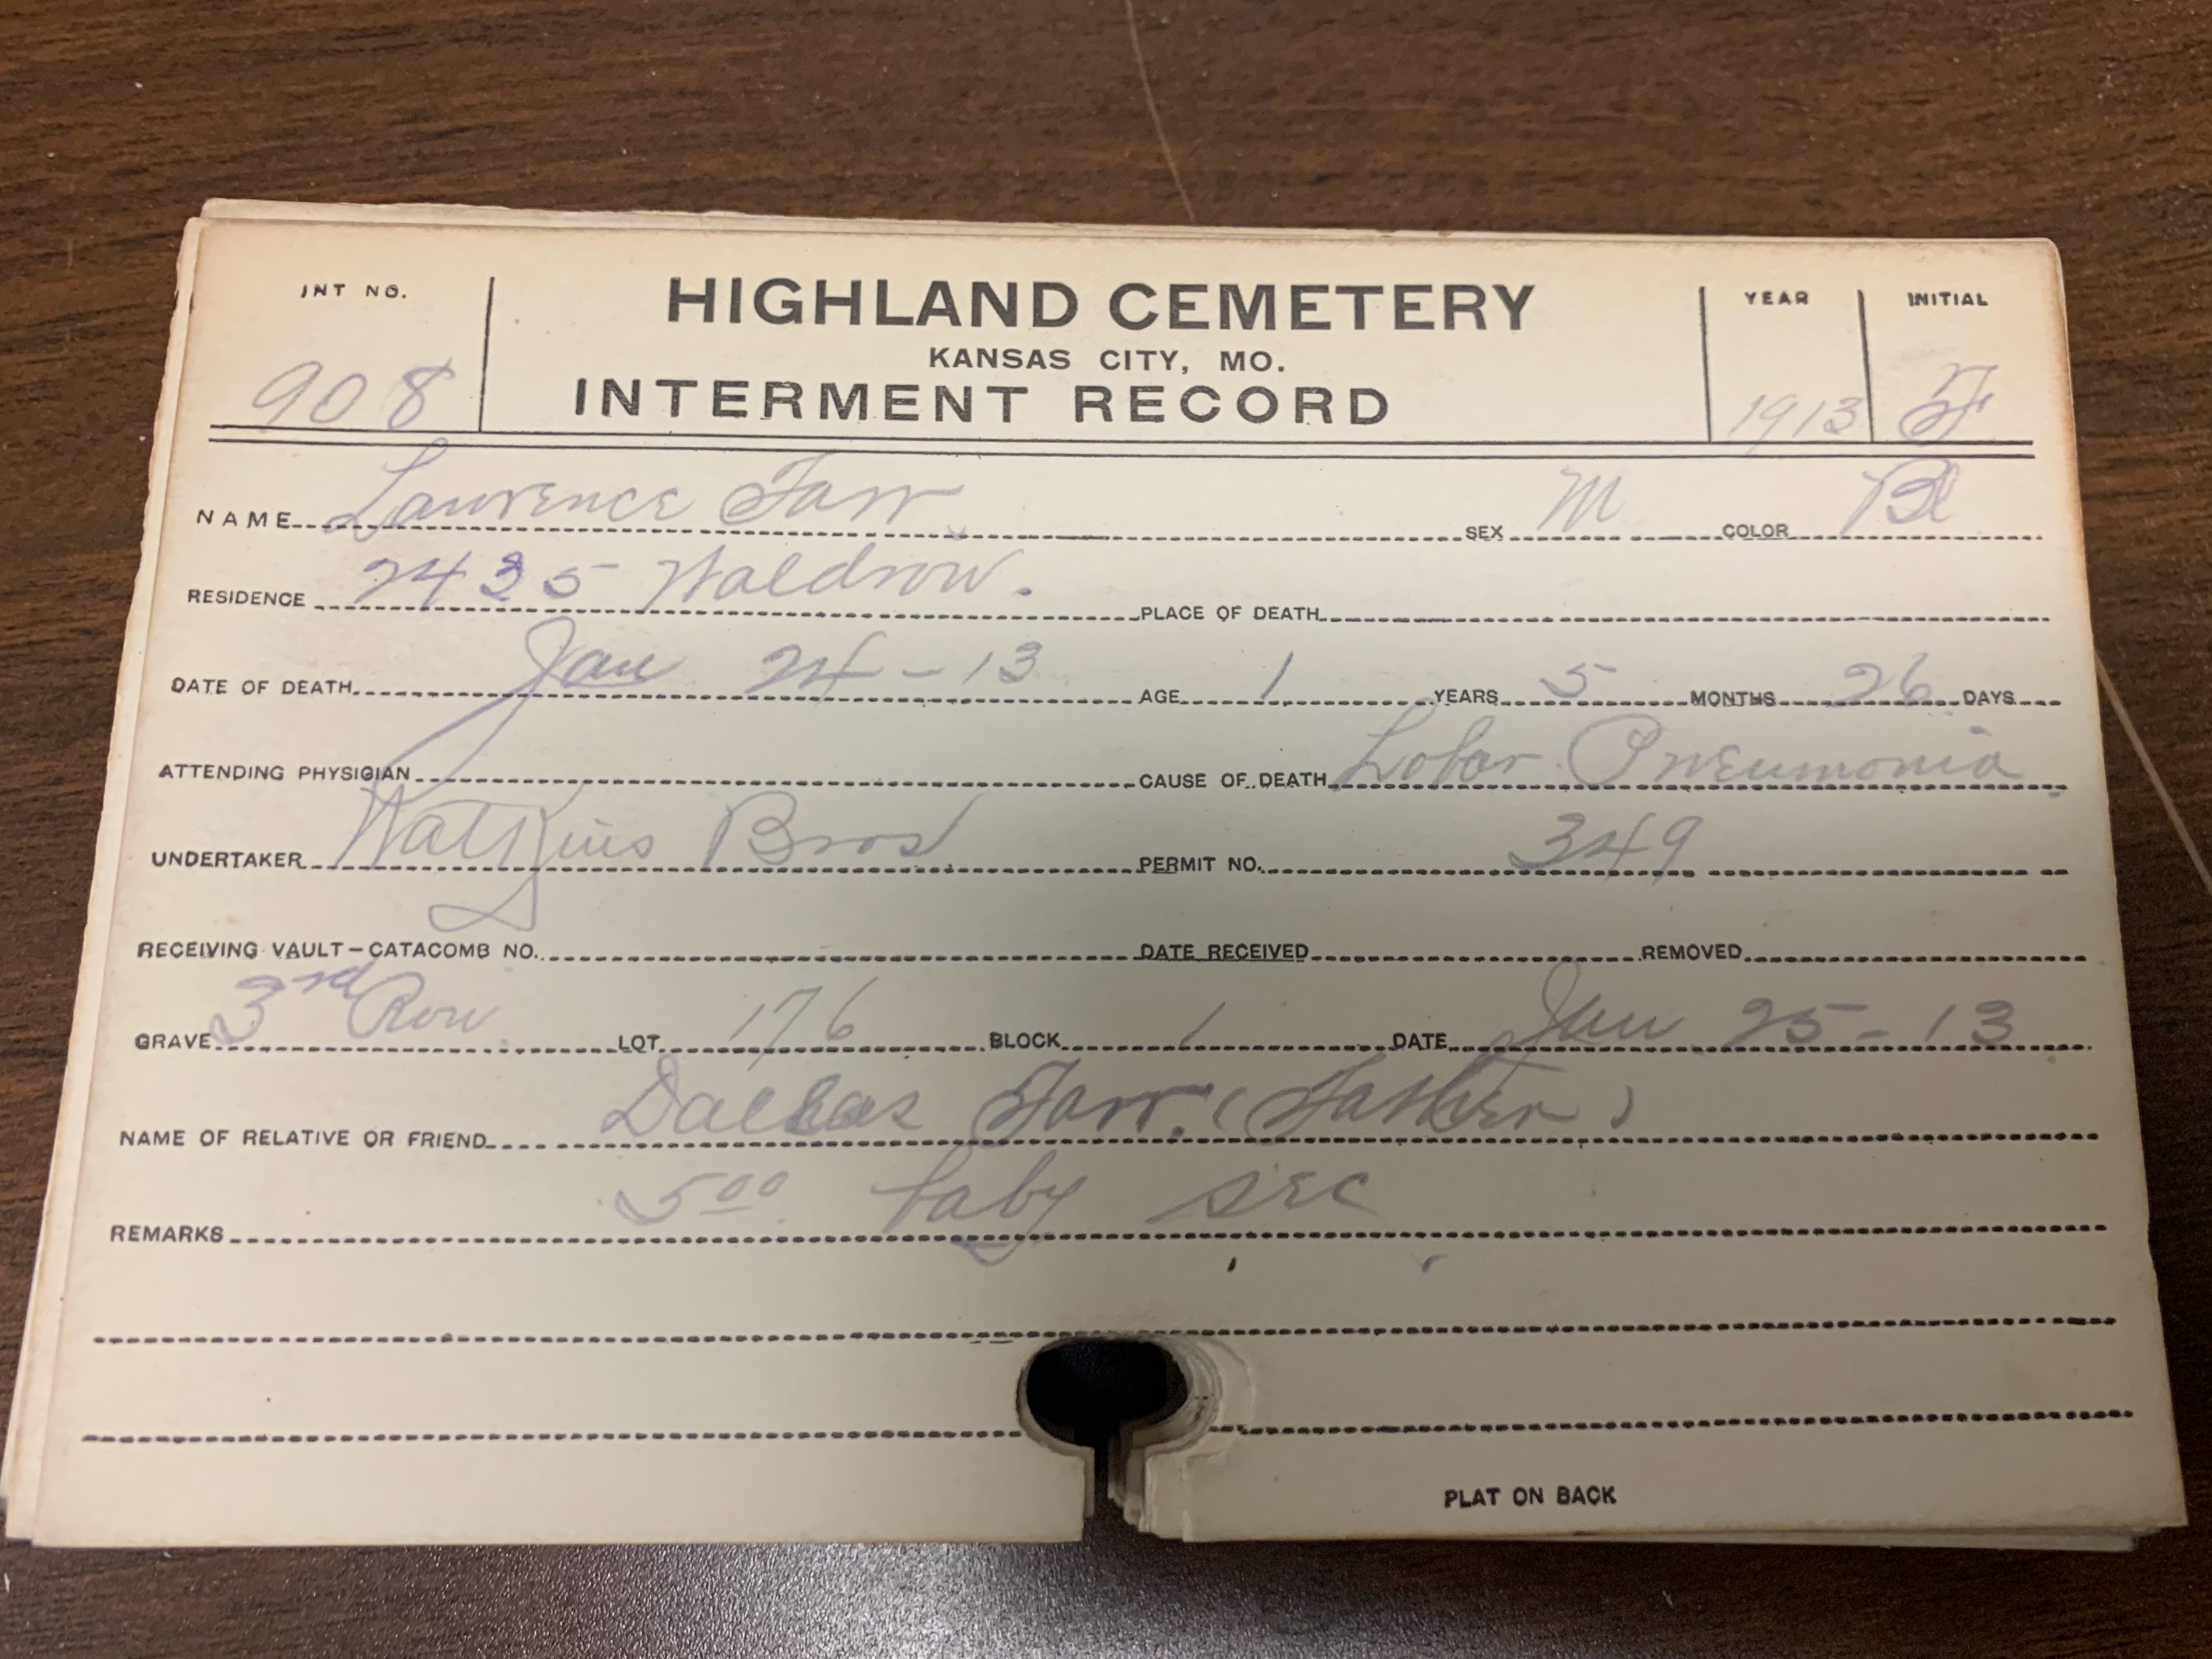 INT NO. HIGHLAND CEMETERY YEAR INITIAL
KANSAS CITY, MO.
908 INTERMENT RECORD 1913 F
NAME Lawrence Farr SEX M COLOR Bl
RESIDENCE 2435 Waldrow. PLACE OF DEATH
DATE OF DEATH Jan 24-13 AGE 1 YEARS 5 MONTHS 26 DAYS
ATTENDING PHYSICIAN CAUSE OF DEATH Lobar Pneumonia
UNDERTAKER Watkins Bros PERMIT NO. 349
RECEIVING VAULT-CATACOMB NO. DATE RECEIVED REMOVED
GRAVE 3rd Row LOT 176 BLOCK 1 DATE Jan 25-13
NAME OF RELATIVE OR FRIEND Dallas Farr. (Father)
REMARKS 500 baby sec
PLAT ON BACK